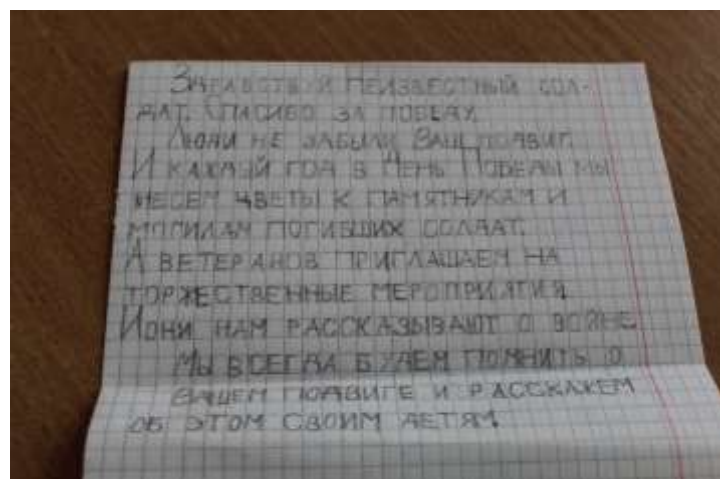 Здравствуй неизвестный сол-
дат. Спасибо за победу.
Люди не забыли Ваш подвиг.
И каждый год в День Победы мы
несем цветы к памятникам и
могилам погибших солдат.
А ветеранов приглашаем на
торжественные мероприятия.
И они нам рассказывают о войне.
Мы всегда будем помнить о
вашем подвиге и расскажем
об этом своим детям.